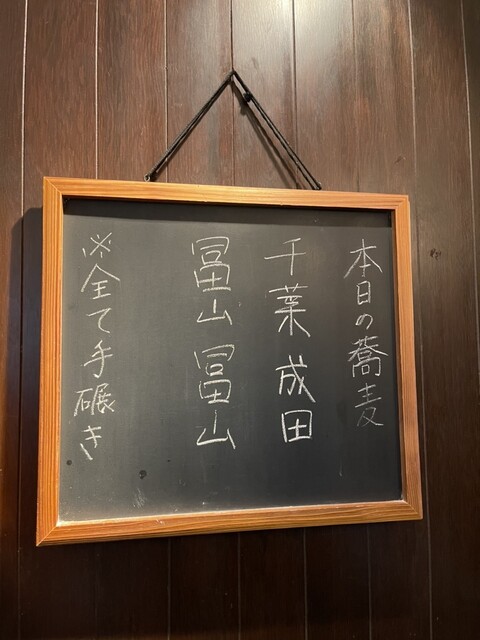 本日の蕎麦
千葉 成田
冨山 冨山
※全て手碾き